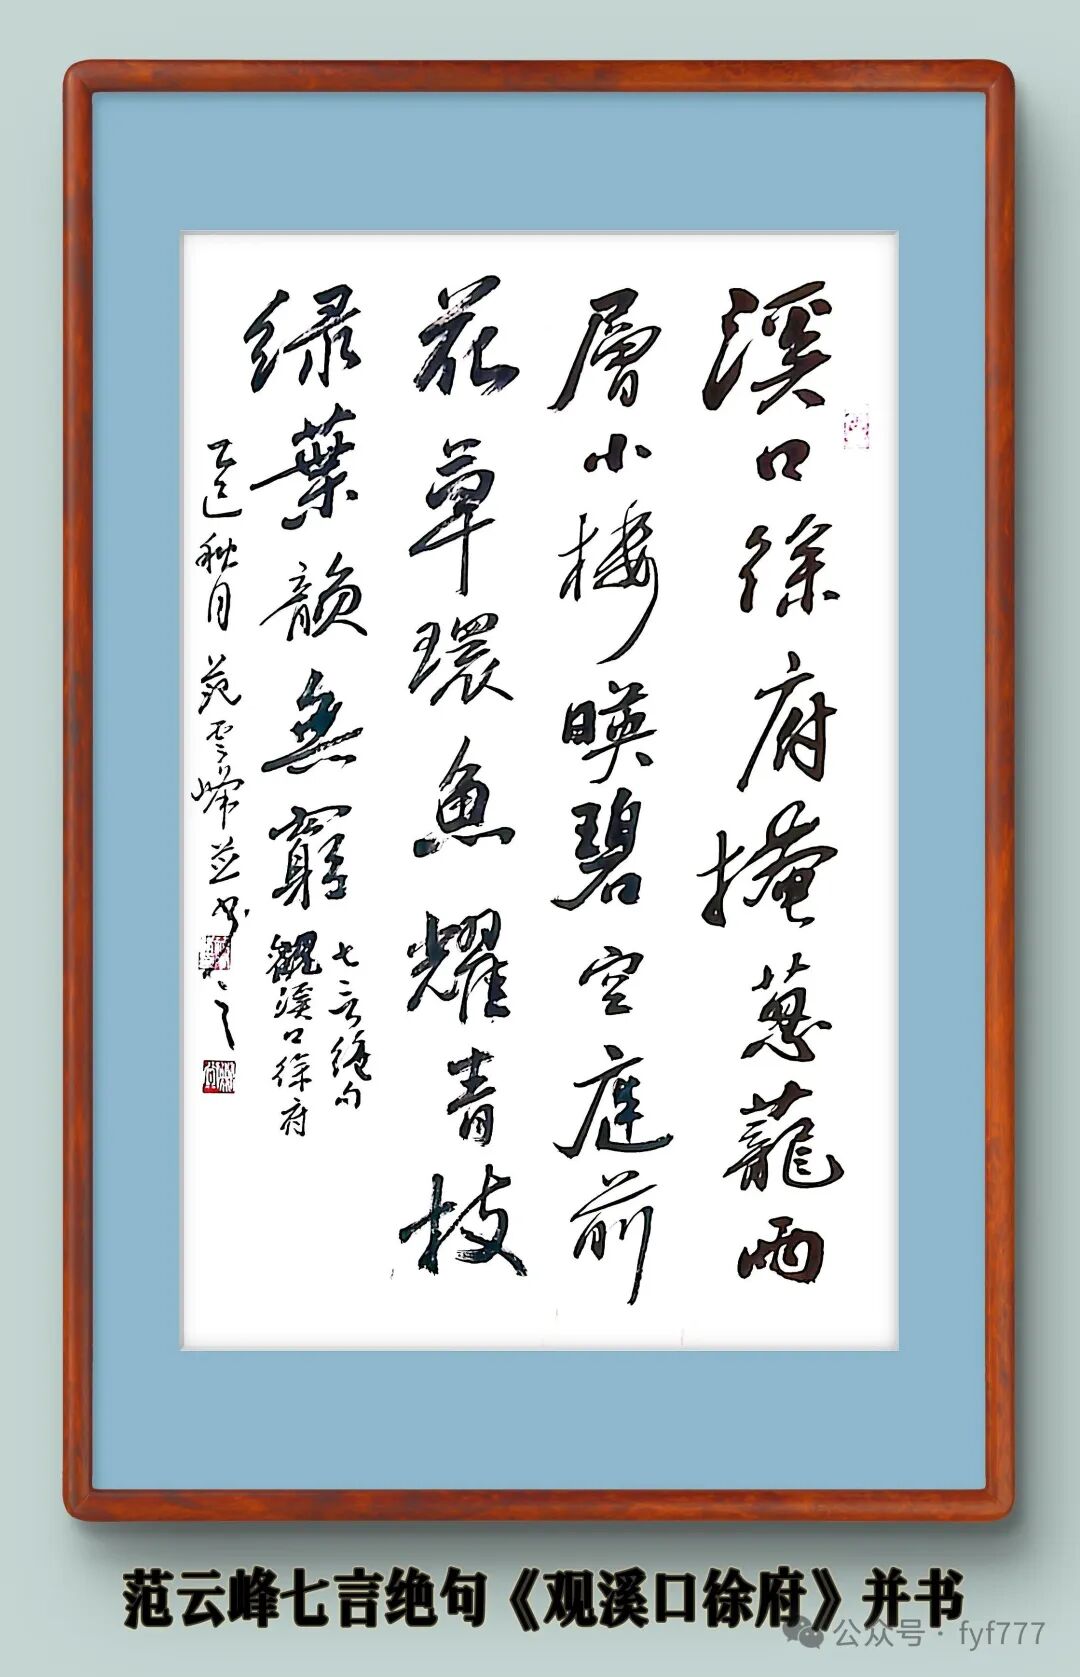 溪口徐府掩蔥蘢两
層小楼暎碧空庭前
花草環魚耀青枝
绿葉韻無窮
七言绝句
觀溪口徐府
乙巳秋月范雲峰并书
范云峰七言绝句《观溪口徐府》并书
公众号·fyf777